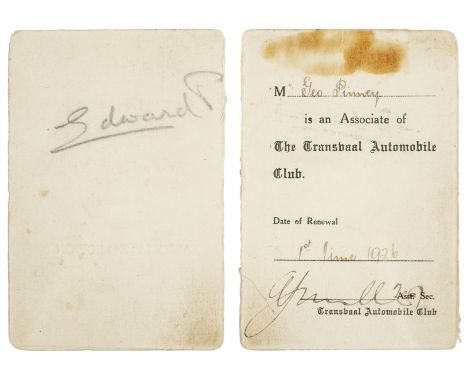 Edward P
M^r Geo Pinney
is an Associate of
The Transvaal Automobile
Club.
Date of Renewal
1st June 1926
Asst. Sec.
Transvaal Automobile Club